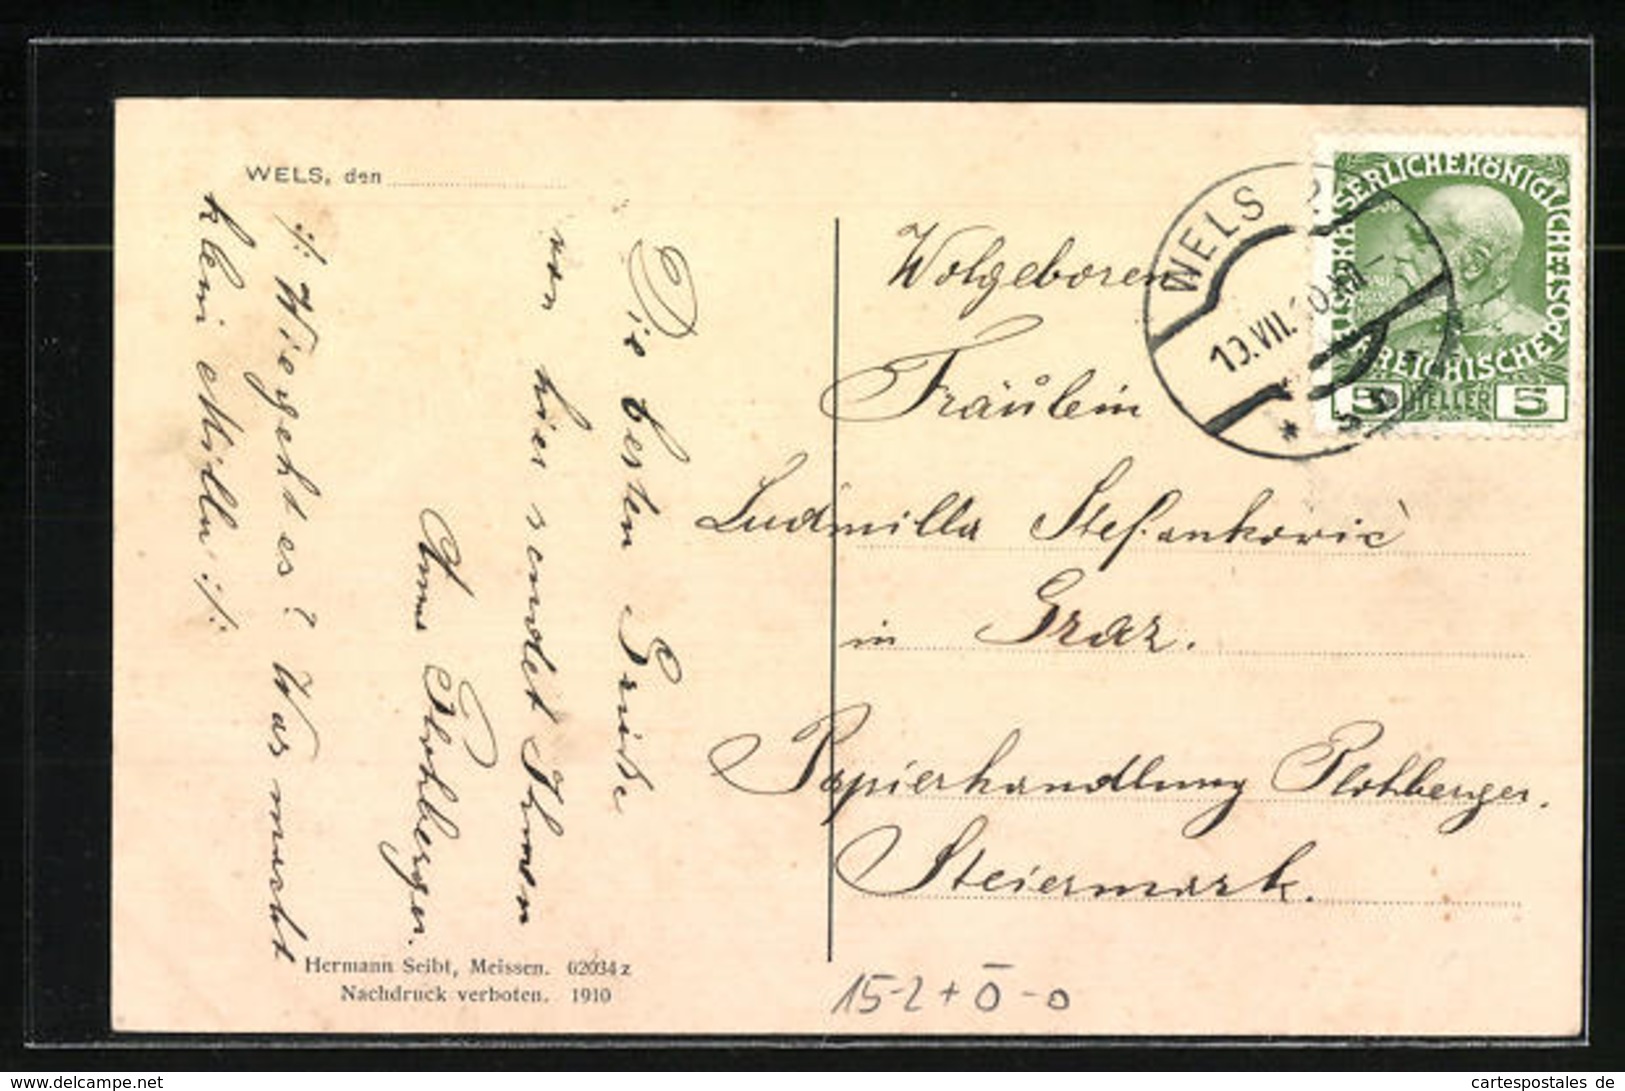 WELS, den
Die besten Grüße
von hier sendet Ihnen
Anna Plohberger.
:/: Wie geht es? Was macht
klein Milli :/:
Hermann Seibt, Meissen. 62034 z
Nachdruck verboten. 1910
WELS 2
13.VII.10
KAISERLICHEKÖNIGLICHE
ÖSTERREICHISCHE POST
5 HELLER 5
Wolgeboren
Fräulein
Ludmilla Stefanković
in Graz.
Papierhandlung Plohberger.
Steiermark.
15-2 + Ō - o
cartespostales de